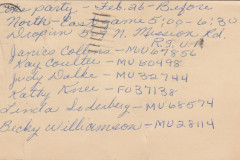 party - Feb. 26 - Before
North - East game 5:00 - 6:30
Drop in 5 N. Mission Rd.
R.S.V.P.
Janice Collens - MU67856
Kay Coulter - MU 60498
Judy Dalke - MU 32744
Kathy Knee - FU37138
Linda Soderberg - MU68574
Becky Williamson - MU 28114